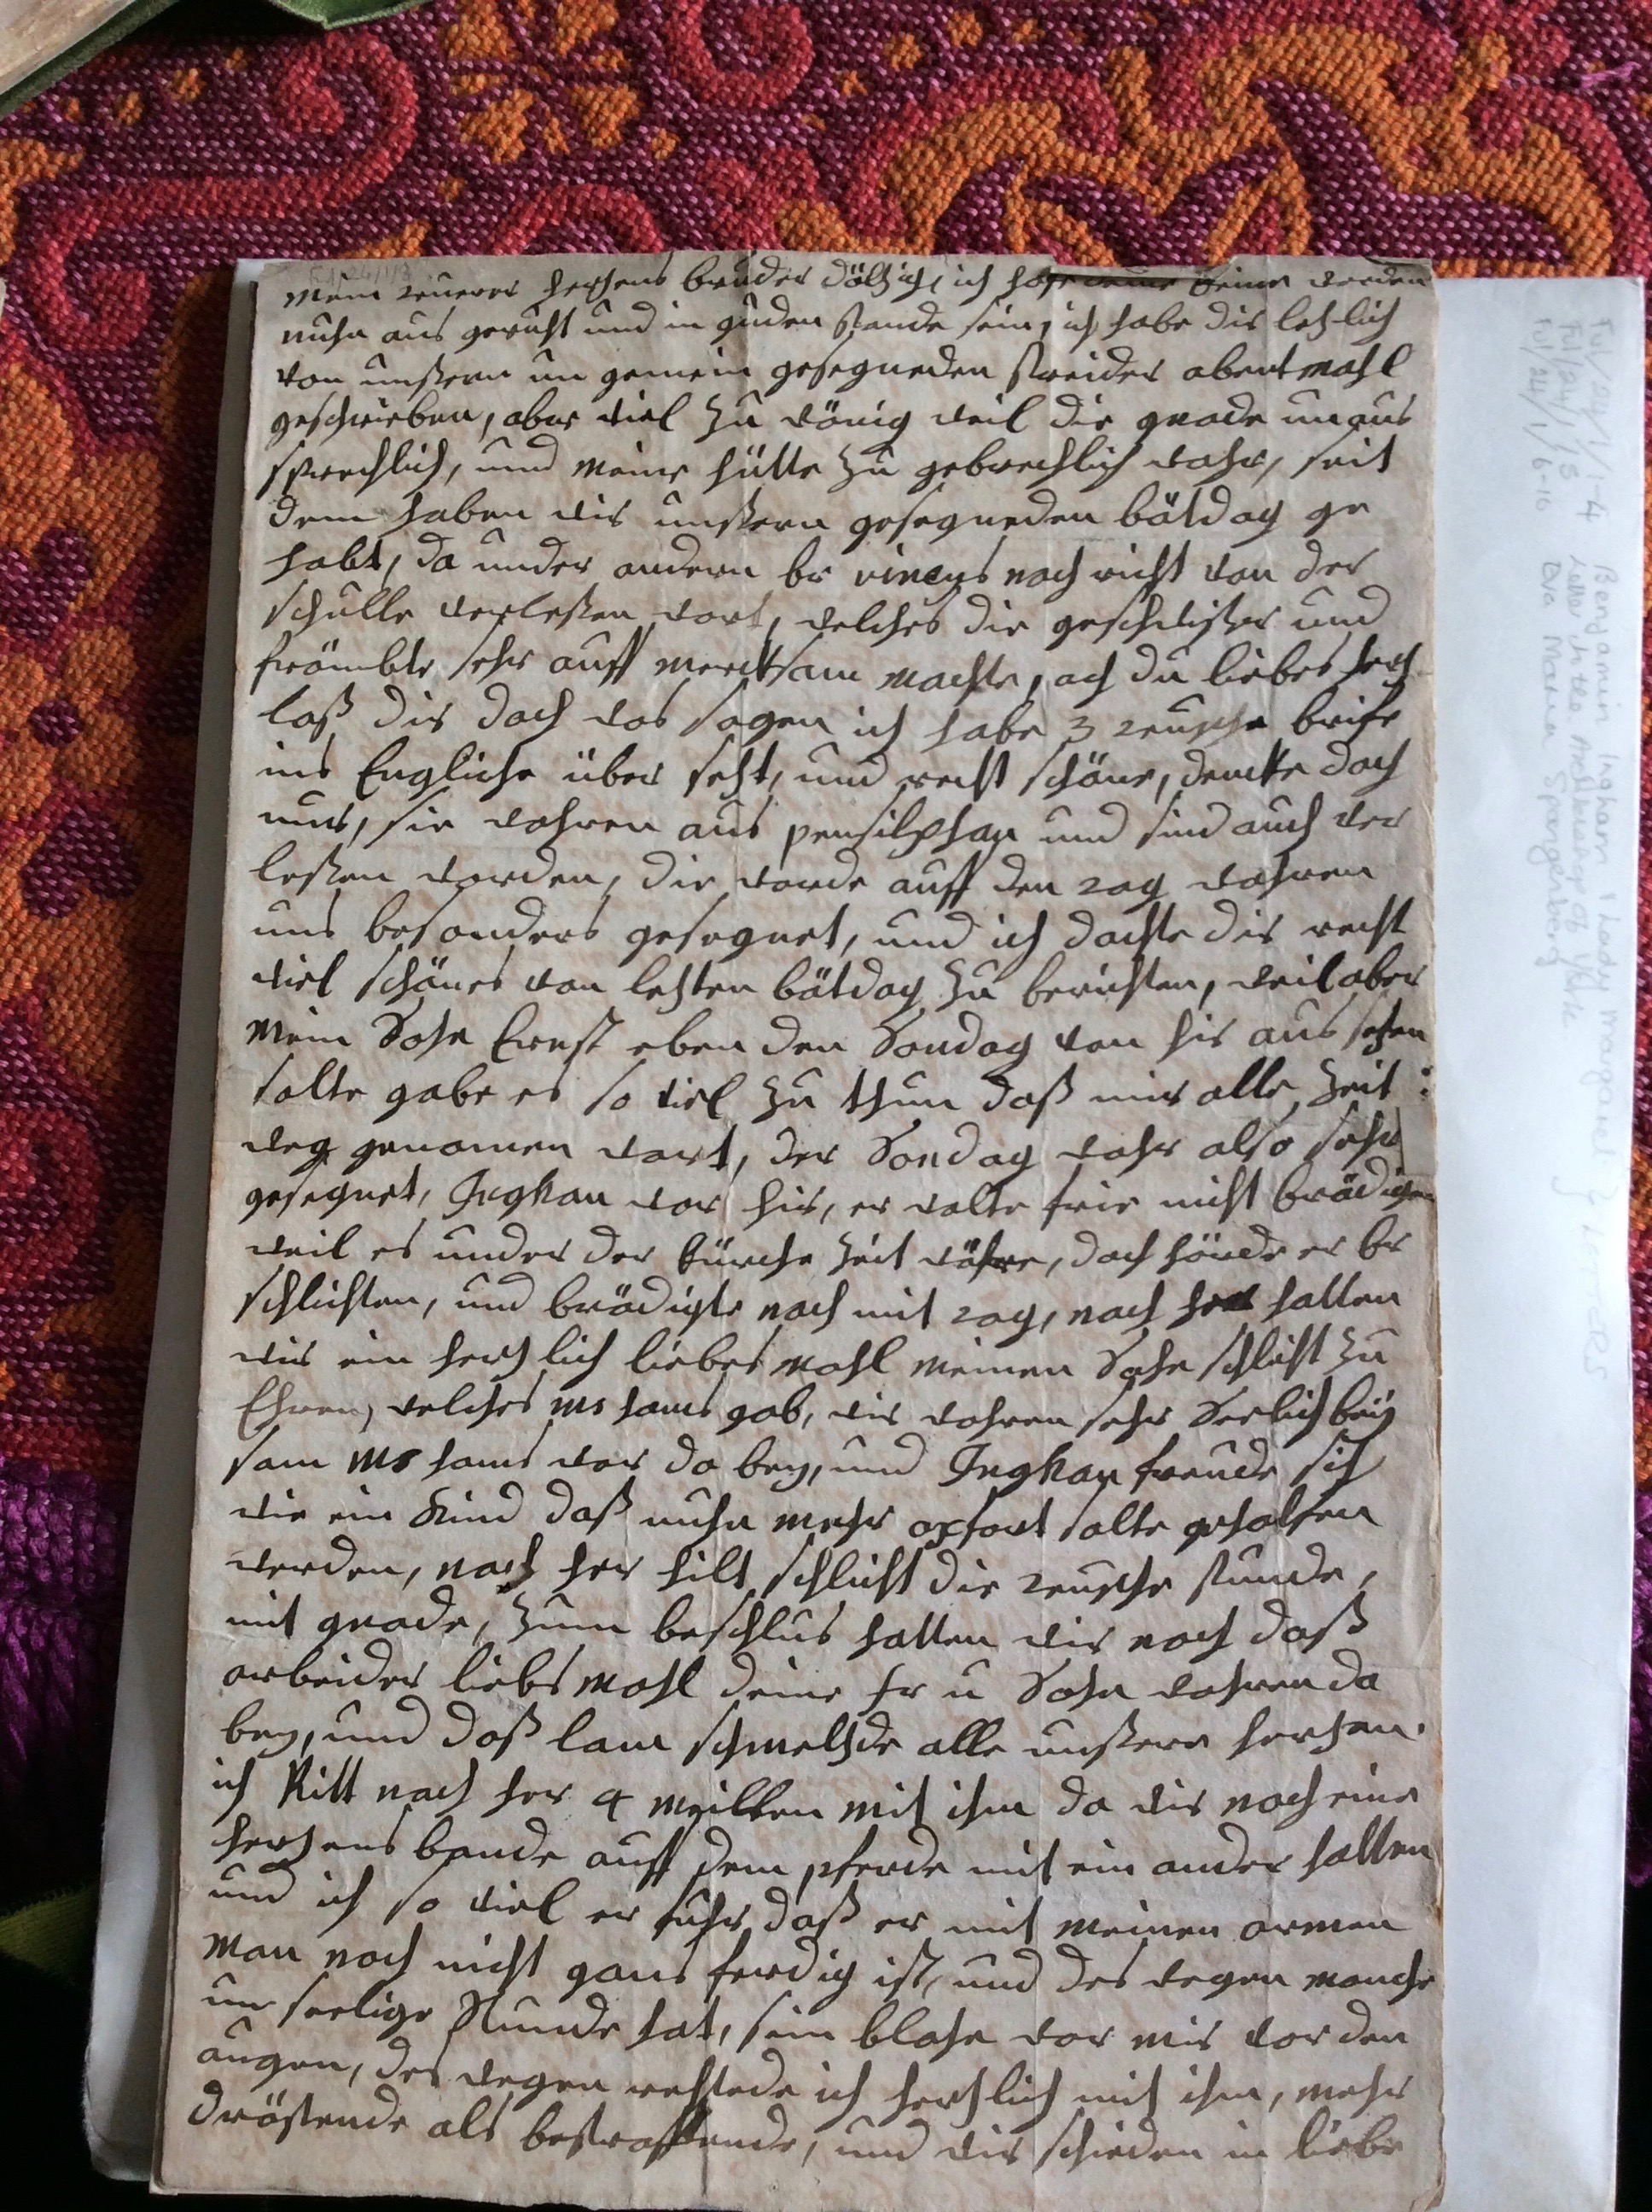 mein teuerer hertzens bruder döltzig, ich hoffe deine beine werden
nuhn aus geruht und in guden stande sein, ich habe dir letzlich
von unßern un gemein gesegneden streider abentmahl
geschrieben, aber viel zu wönig weil die gnade unaus
sprechlich, und meine hütte zu gebrechlich wahr, seit
dem haben wir unßern gesegneden bätdag ge
habt, da under andern br vineys nach richt von der
schulle verleßen wort, welches die geschwister und
frömbte sehr auff mercksam machte, ach du liebes hertz
laß dir doch das sagen ich habe 3 teusche brife
ins Engliche über setzt, und recht schöne, dencke doch
nur, sie wahren aus pensilphan und sind auch ver
leßen worden, die worde auff den tag wahren
uns besonders gesegnet, und ich dachte dir recht
viel schönes von letzten bätdag zu berichten, weil aber
mein Sohn Ernst eben den Sondag von hir aus sehen
solte gabe es so viel zu thun daß mir alle zeit
weg genomen wort, der Sondag wahr also sehr
gesegnet, Ingham war hir, er wolte frie nicht brädigen
weil es under der kürche zeit währe, doch hörde er br
schlichten, und brädigte nach mit tag, nach her hatten
wir ein hertzlich liebesmahl meinen Sohn schlicht zu
Ehren, welches ms hams gab, wir wahren sehr Seelich bey
sam ms hams war da bey, und Ingham freude sich
wie ein Kind daß nuhn mehr oxfort solte geholfen
werden, nach her hilt schlicht die teusche stunde,
mit gnade, zum beschlus hatten wir noch daß
arbeider liebsmahl deine fr u Sohn wahren da
bey, und daß lam schmeltzde alle unßere hertzen.
ich Ritt nach her 4 meillen mit ihm da wir noch eine
hertzens bande auff dem pferde mit ein ander hatten
und ich so viel er fuhr daß er mit meinen armen
man noch nicht gans ferdig ist, und des wegen manche
un seelige Stunde hat, sein blose war mir vor den
augen, des wegen rehdede ich hertzlich mit ihm, mehr
dröstende als bestraffende, und wir schieden in liebe
Benjamin Ingham & Lady Margaret } Letters
Eva Maria Spangenberg